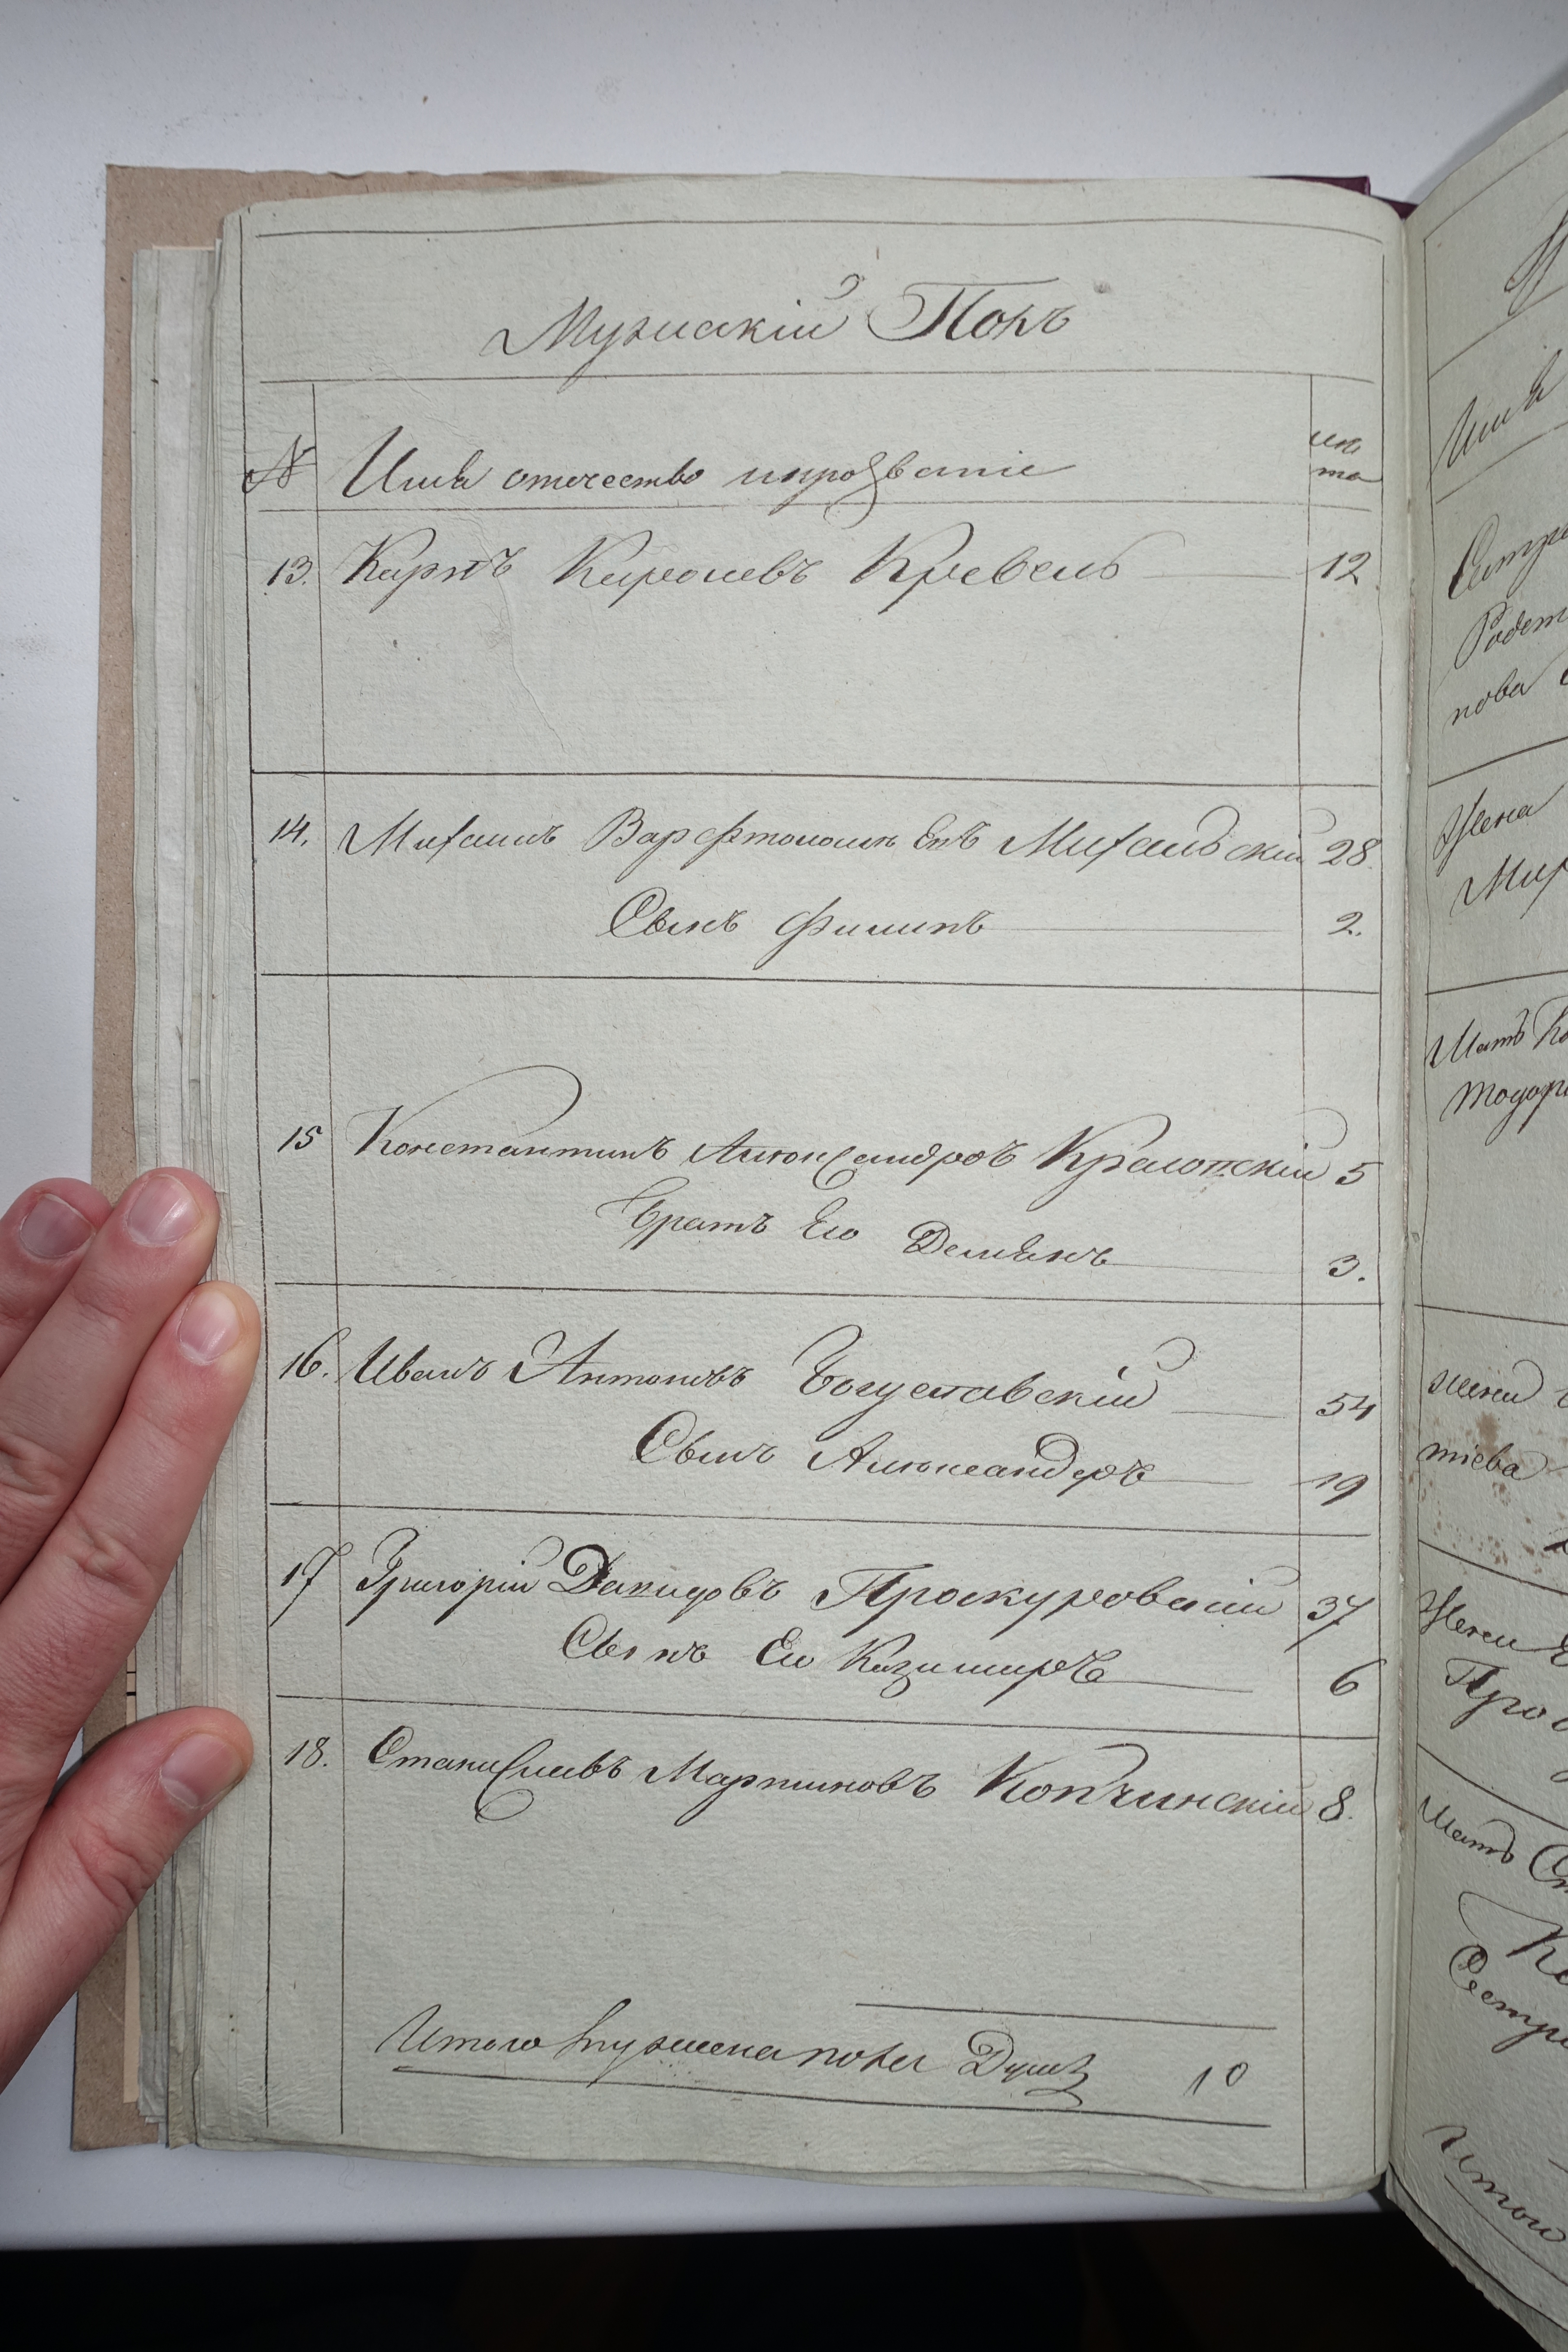 Мужискій Полъ
№ Имя отечество ипрозвание
лѣ
та
13. Карлъ Каролевъ Кревель 12
14. Михаилъ Варфтоломѣевъ Михальскій 28
Сынъ Филипъ 2.
15 Константинъ Александровъ 5
Братъ Его Демянъ 3.
16. Иванъ Антоновъ Богуславскій 54
Сынъ Александеръ 19
17 Григорій Давидовъ Проскуровскій 37
Сынъ Ею Казимиръ 6
18. Станиславъ Мартиновъ Копчинскій 8.
Итого Мужеска пола Душъ 10
Имя
Сестра
нова
Жена
Мать
жена
тіева
Жена
Мать
Сестра
Итого